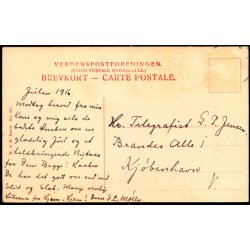 VERDENSPOSTFORENINGEN.
(UNION POSTALE UNIVERSELLE.)
BREVKORT — CARTE POSTALE.
Julen 1916.
Modtag herved fra min
Kone og mig selv de
bedste Ønsker om en
glædelig Jul og et
heldbringende Nytaar
for Dem Begge! Haaber
De har det godt
Slid og Slæb. Mange venlig
Hilsener fra Hjem til Hjem! Deres
Hr. Telegrafist L. P. Jensen
Brandes Alle 1
Kjøbenhavn
V.